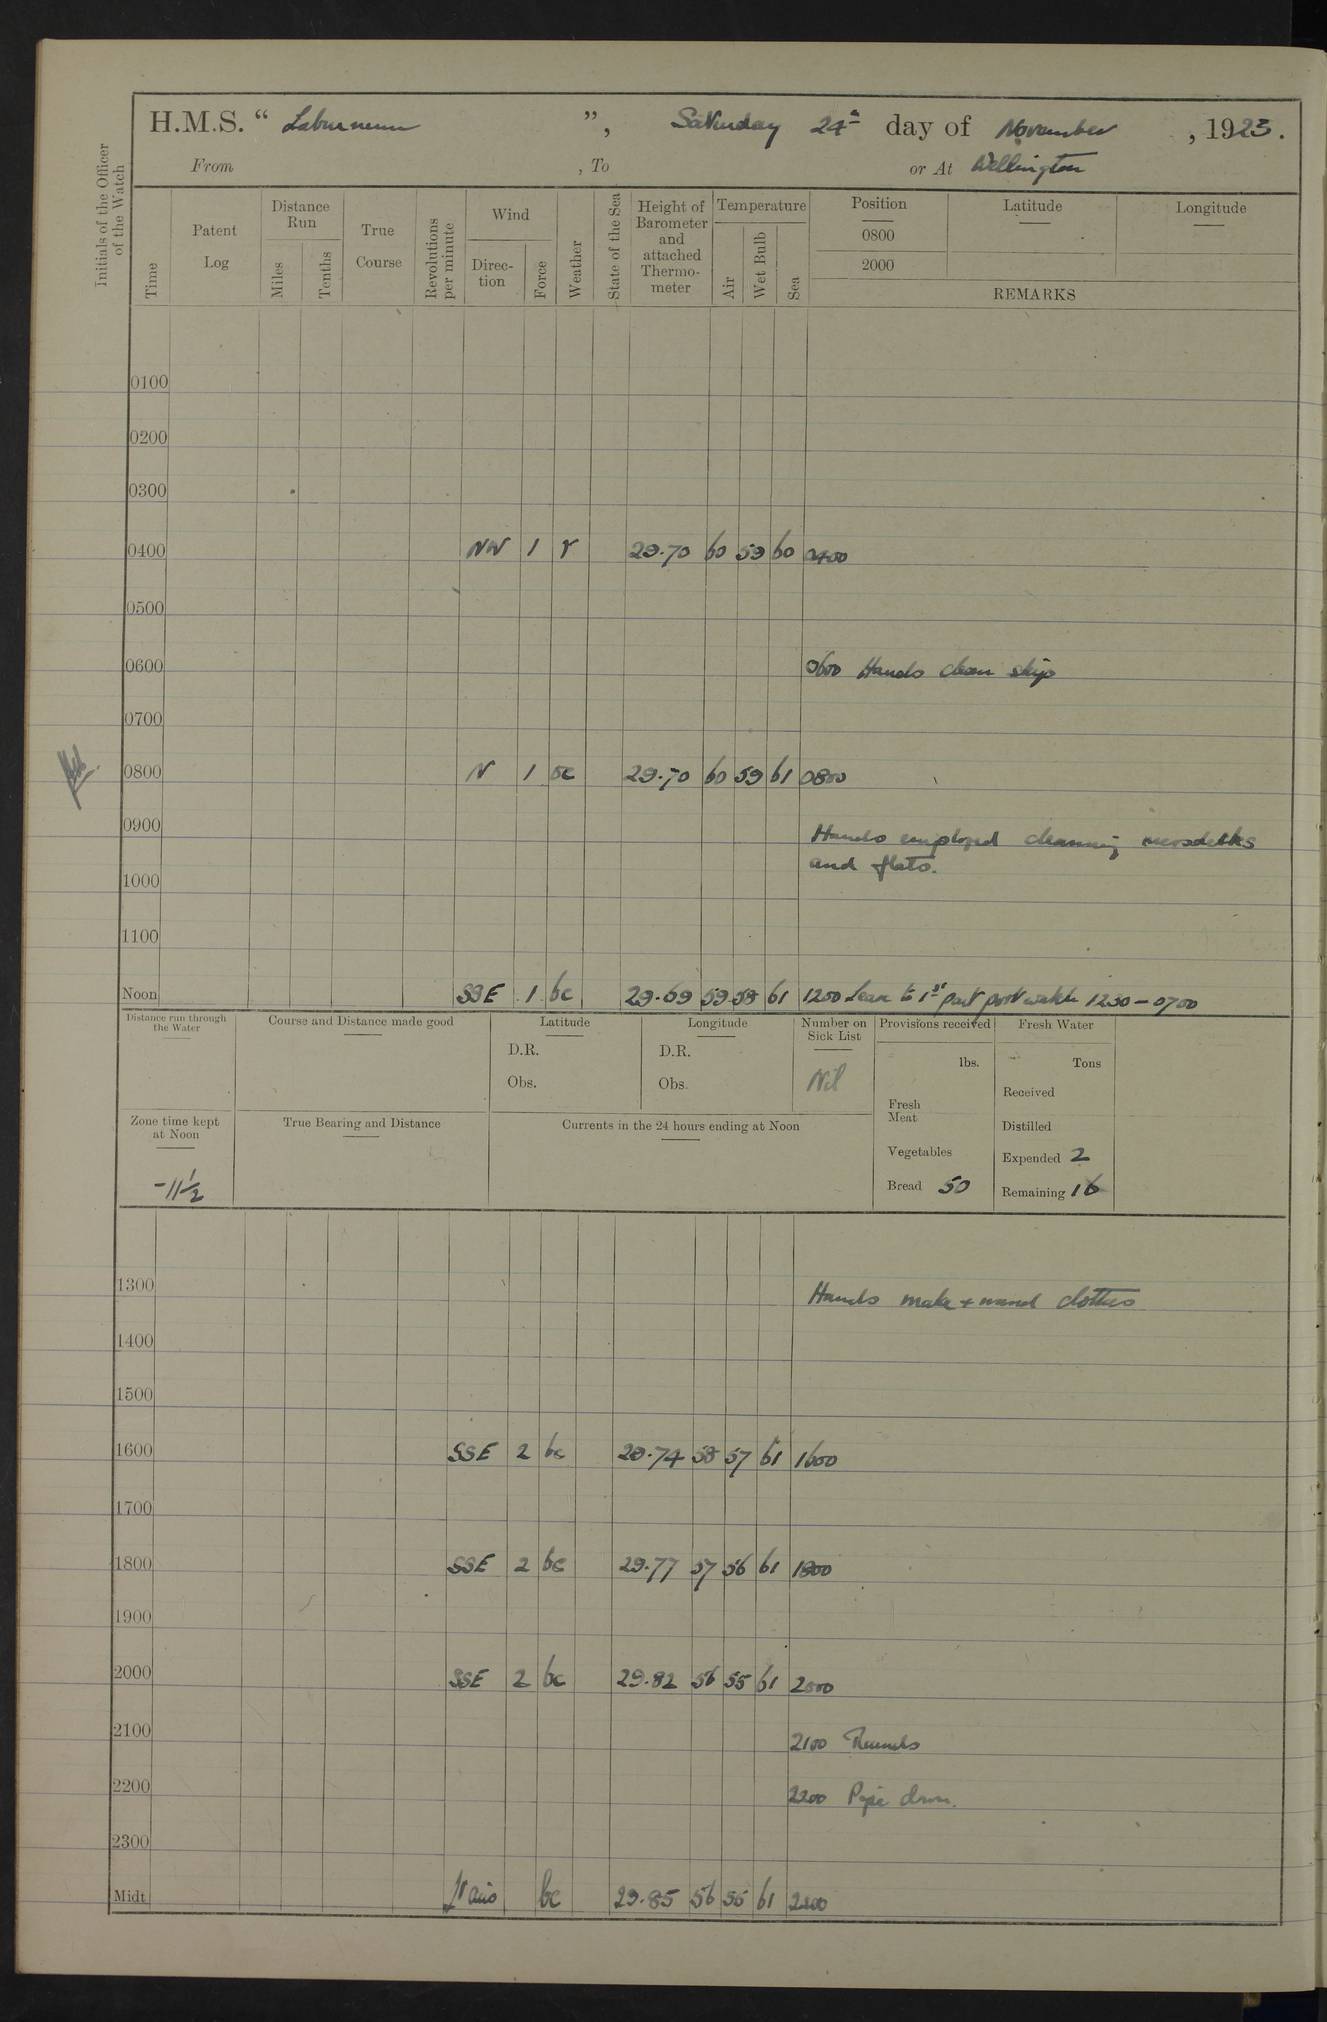 H.M.S. “ Laburnum ”, Saturday 24th day of November , 1923.
From , To or At Wellington
Initials of the Officer of the Watch
Time
Patent Log
Distance Run
Miles
Tenths
True Course
Revolutions per minute
Wind
Direc-tion
Force
Weather
State of the Sea
Height of Barometer and attached Thermo-meter
Temperature
Air
Wet Bulb
Sea
Position Latitude Longitude
0800
2000
REMARKS
0100
0200
0300
0400 NW 1 r 29.70 60 59 60 0400
0500
0600 0600 Hands clean ship
0700
0800 N 1 bc 29.70 60 59 61 0800
0900 Hands employed cleaning messdecks
and flats.
1000
1100
Noon SSE 1 bc 29.69 59 58 61 1200 Leave to 1st part port watch 1230 – 0700
Distance run through the Water
Course and Distance made good
Latitude
D.R.
Obs.
Longitude
D.R.
Obs.
Number on Sick List
Nil
Provisions received
lbs.
Fresh Meat
Vegetables
Bread 50
Fresh Water
Tons
Received
Distilled
Expended 2
Remaining 16
Zone time kept at Noon
-11½
True Bearing and Distance
Currents in the 24 hours ending at Noon
1300 Hands make + mend clothes
1400
1500
1600 SSE 2 bc 29.74 58 57 61 1600
1700
1800 SSE 2 bc 29.77 57 56 61 1800
1900
2000 SSE 2 bc 29.82 56 55 61 2000
2100 2100 Rounds
2200 2200 Pipe down.
2300
Midt. bc 29.85 56 55 61 2400